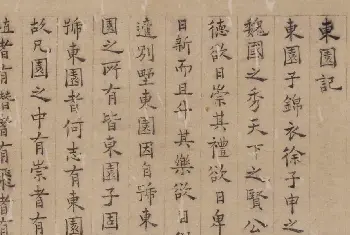 東園記
東園子錦衣徐子申之
魏國之秀天下之賢公
德欲日崇其禮欲日卑
日新而且升其樂欲日
遠別墅東園因自號東
園之所有皆東園子固
號東園者何志有東園
故凡園之中有崇者有
植者有替者有飛者有